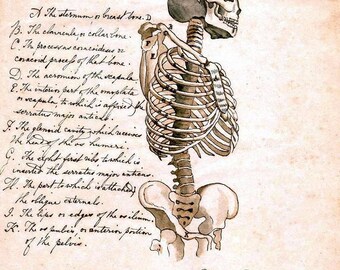 A. The sternum or breast bone. D
B. The clavicula or collar bone.
C. The processus coracoideus or
coracoid process of that bone.
D. The acromion of the scapula.
E. The interior part of the omoplate
or scapula, to which is affixed the
serratus major anticus.
F. The glenoid cavity which receives
the head of the os humeri.
G. The eight first ribs to which is
inserted the serratus major anticus.
H. The part to which is attached
the oblique externals.
I. The lips or edges of the os ilium.
K. The os pubis, or anterior portion
of the pelvis.